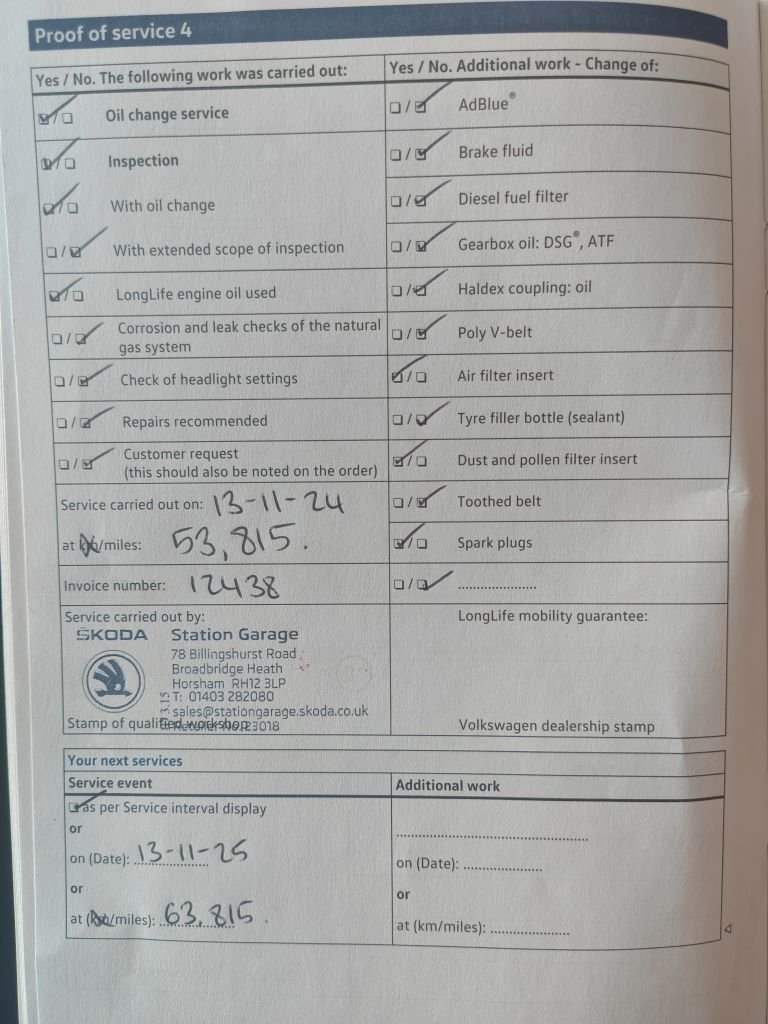 Proof of service 4
Yes / No. The following work was carried out:
Oil change service
Inspection
With oil change
With extended scope of inspection
LongLife engine oil used
Corrosion and leak checks of the natural
gas system
Check of headlight settings
Repairs recommended
Customer request
(this should also be noted on the order)
Service carried out on: 13-11-24
at km/miles: 53,815.
Invoice number: 12438
Service carried out by:
ŠKODA Station Garage
78 Billingshurst Road
Broadbridge Heath
Horsham RH12 3LP
T: 01403 282080
sales@stationgarage.skoda.co.uk
Stamp of qualified workshop
Retailer No.23018
Yes / No. Additional work - Change of:
AdBlue®
Brake fluid
Diesel fuel filter
Gearbox oil: DSG®, ATF
Haldex coupling: oil
Poly V-belt
Air filter insert
Tyre filler bottle (sealant)
Dust and pollen filter insert
Toothed belt
Spark plugs
....................
LongLife mobility guarantee:
Volkswagen dealership stamp
Your next services
Service event
as per Service interval display
or
on (Date): 13-11-25
or
at (km/miles): 63,815.
Additional work
on (Date): ....................
or
at (km/miles): ....................